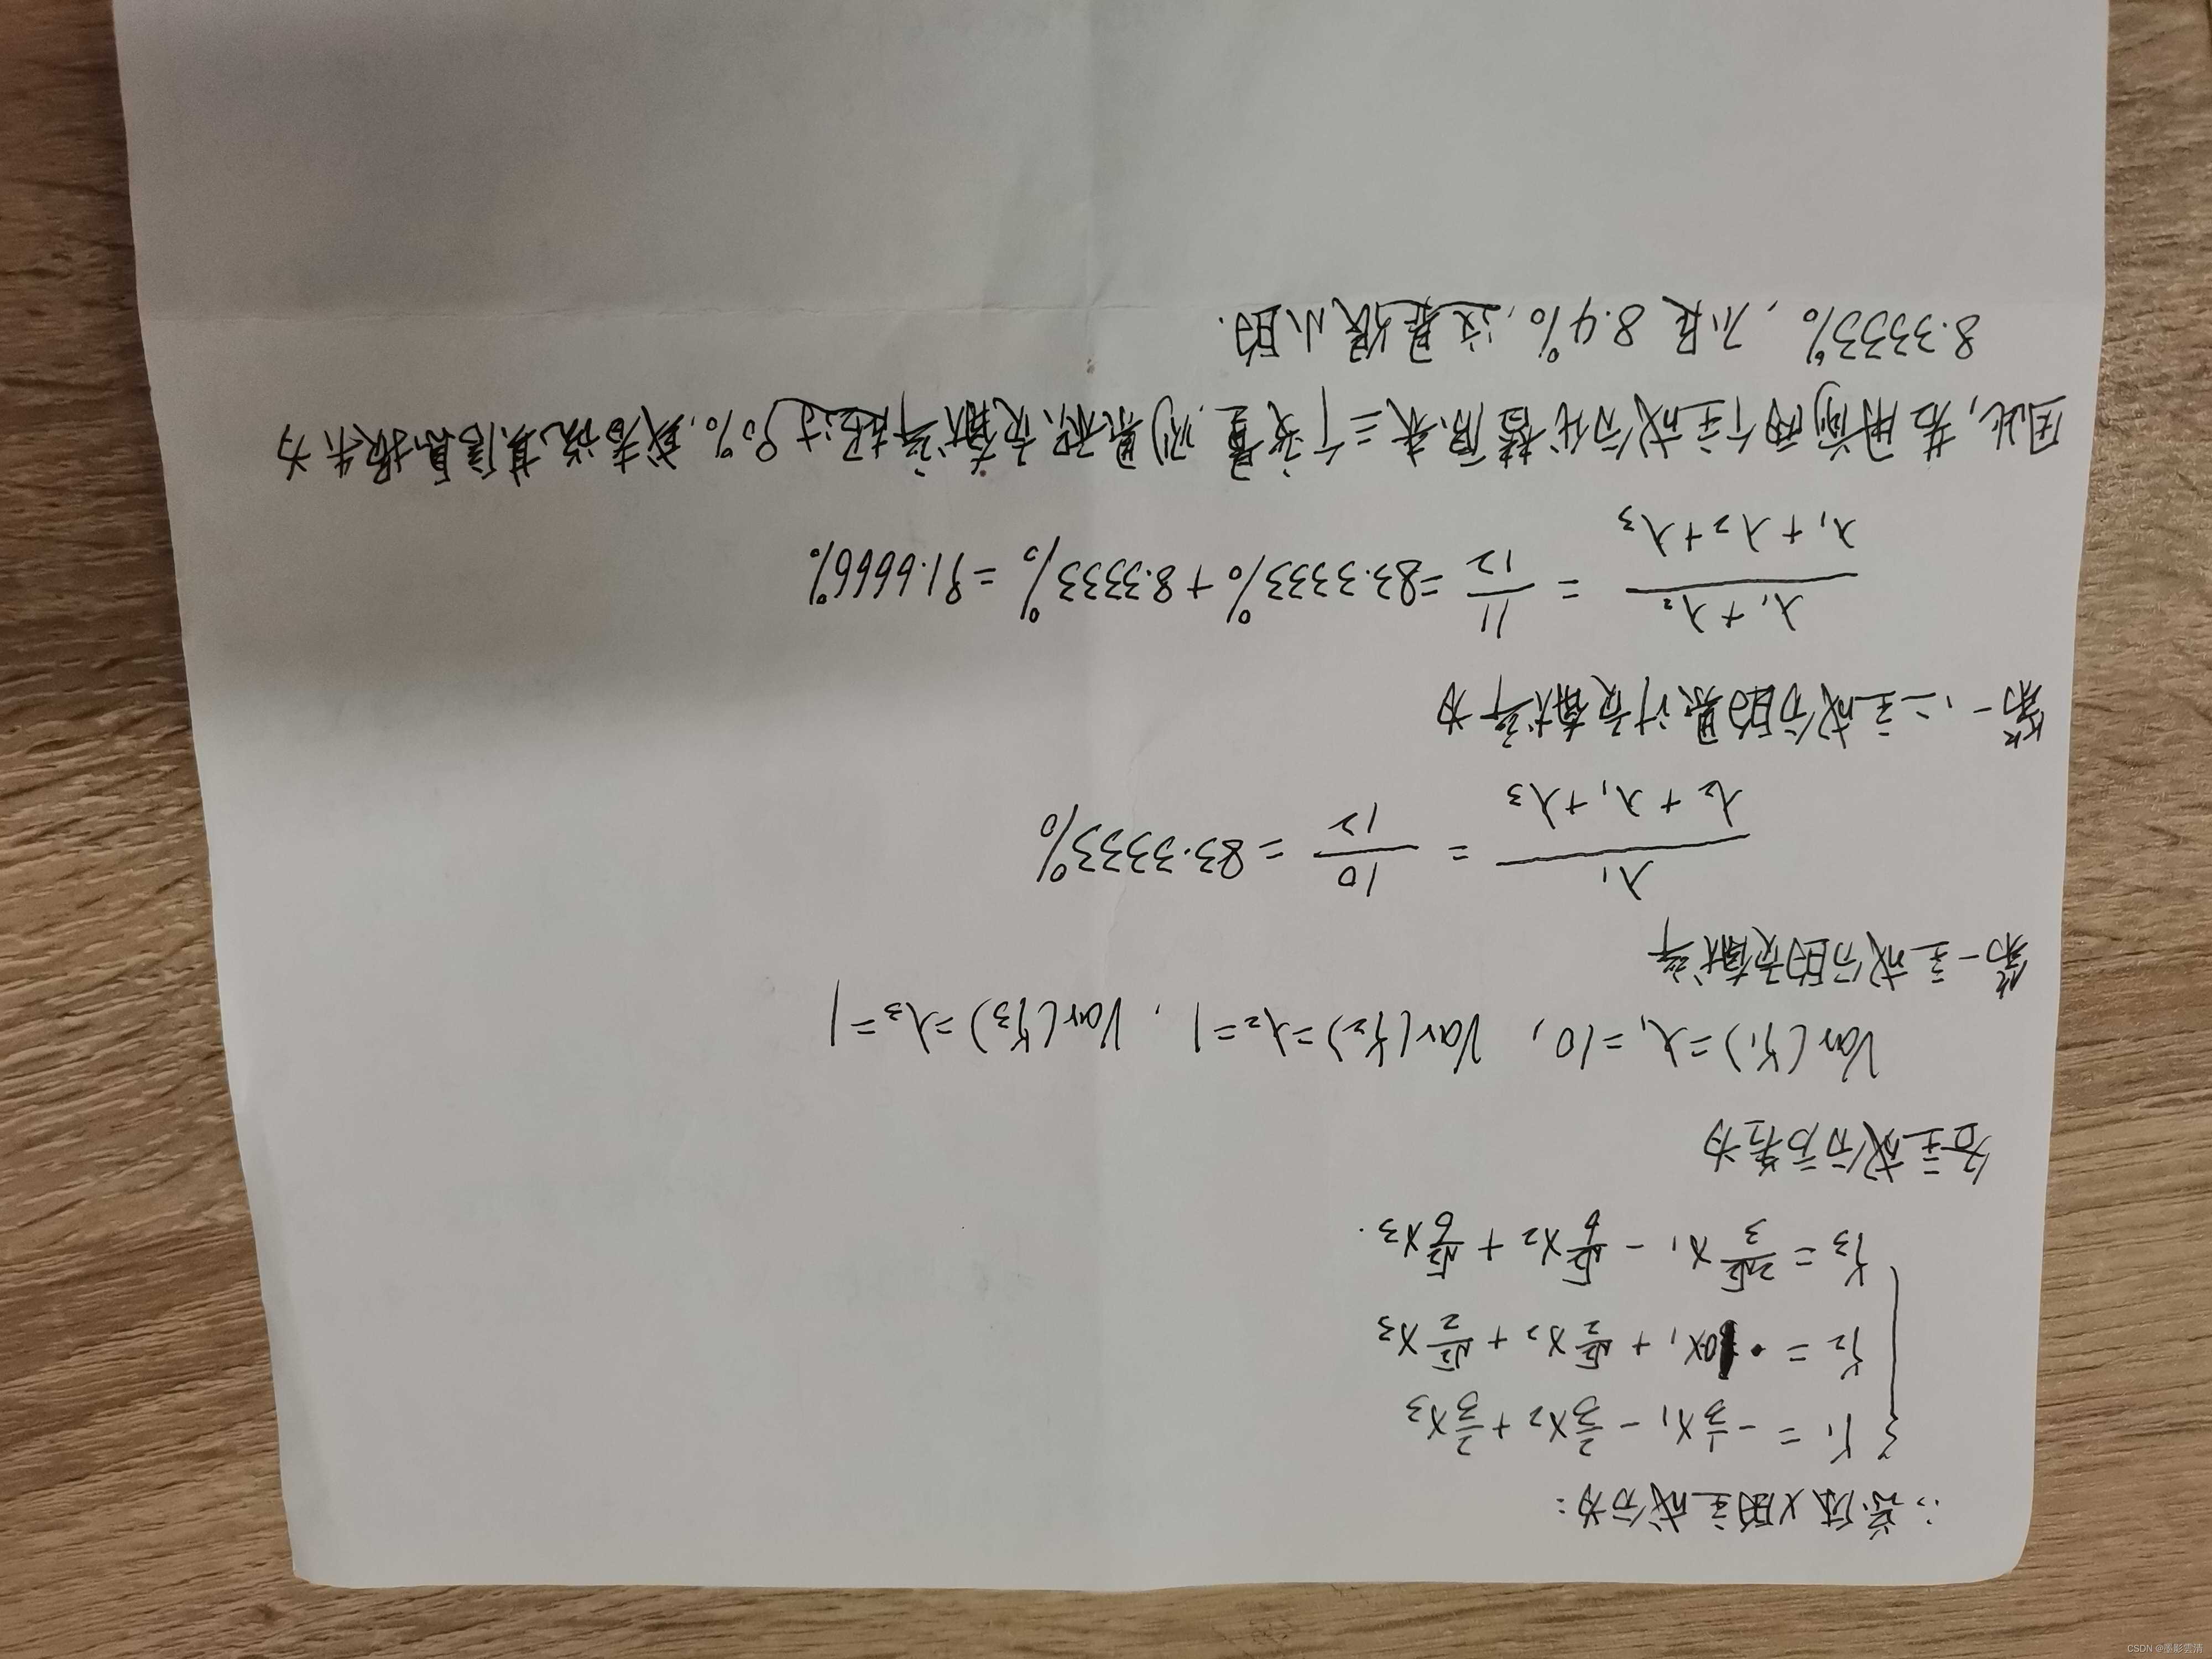 ∴总体X的主成分为:
Y₁ = -1/3 X₁ - 2/3 X₂ + 2/3 X₃
Y₂ = 0X₁ + √2/2 X₂ + √2/2 X₃
Y₃ = 2√2/3 X₁ - √2/6 X₂ + √2/6 X₃.
各主成分方差为
Var(Y₁)=λ₁=10, Var(Y₂)=λ₂=1, Var(Y₃)=λ₃=1
第一主成分的贡献率
λ₁/(λ₂+λ₁+λ₃) = 10/12 = 83.3333%
第一、二主成分的累计贡献率为
(λ₁+λ₂)/(λ₁+λ₂+λ₃) = 11/12 =83.3333%+8.3333% =91.6666%
因此,若用前两个主成分代替原来三个变量,则累积贡献率超过90%,或者说其信息损失为
8.3333%,不足8.4%,这是很小的.
CSDN @墨影雲清